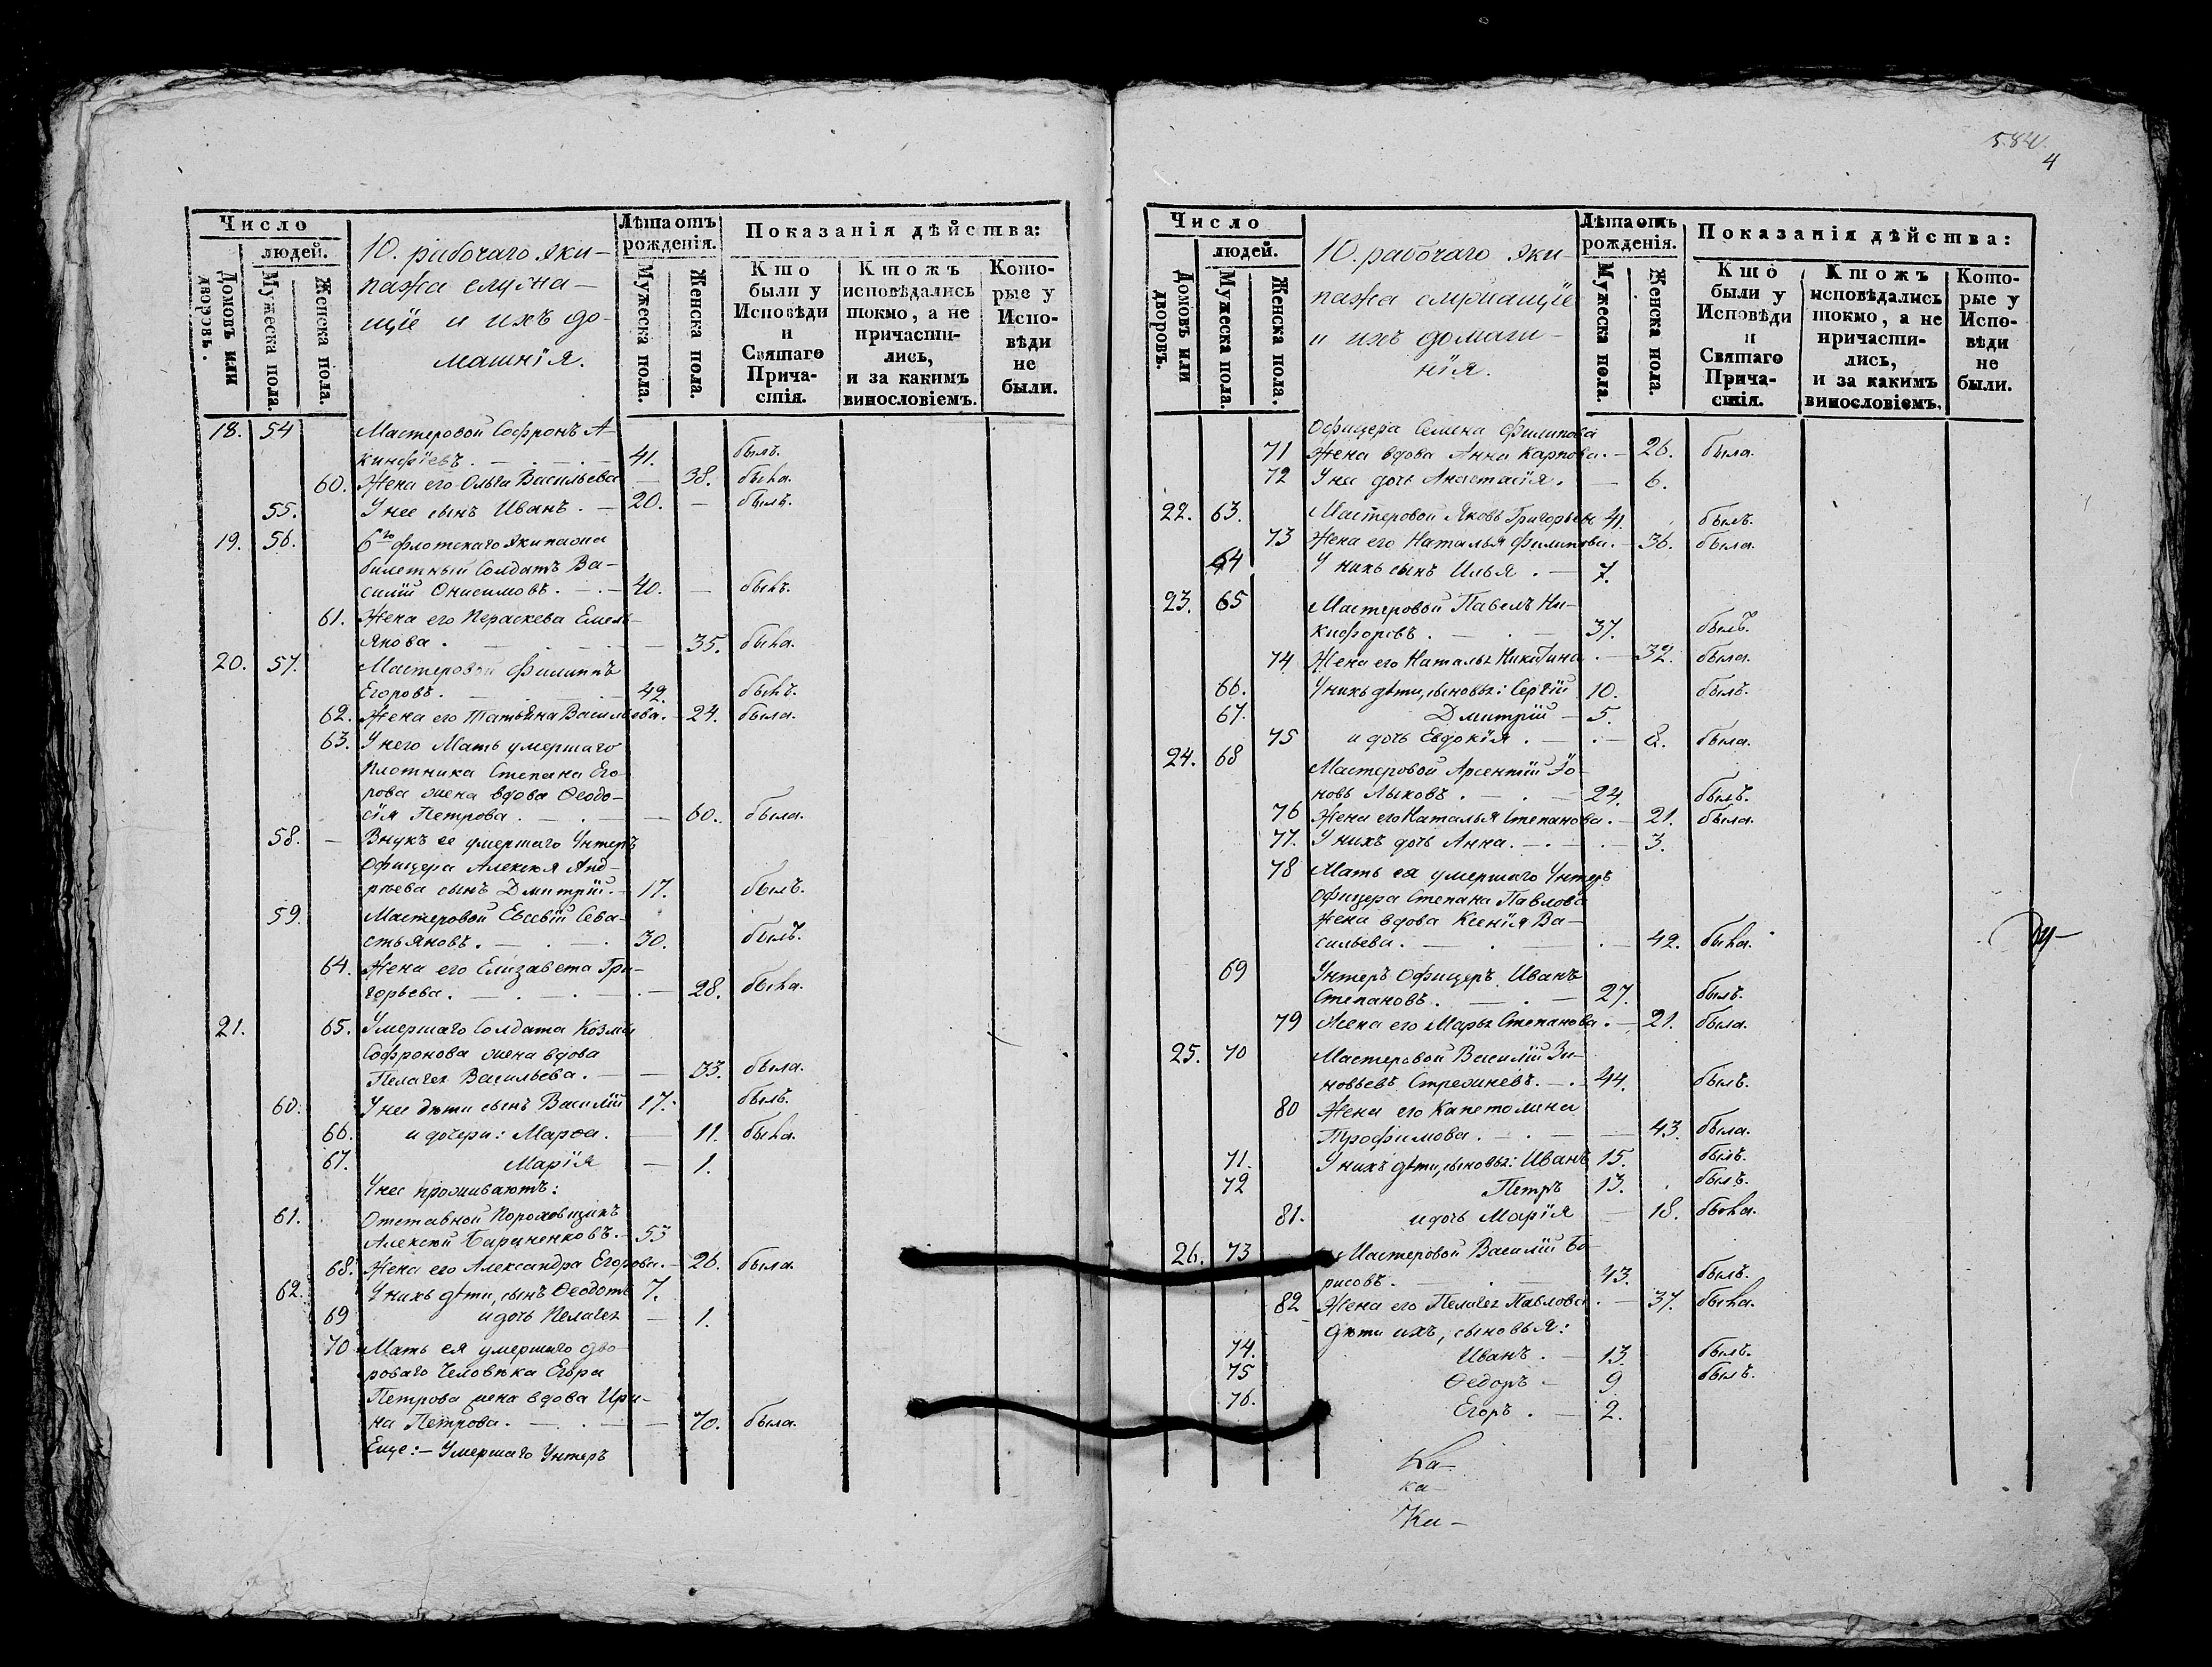 Число
людей.
Домовъ или дворовъ.
Мужеска пола.
Женска пола.
10. рабочаго эки-
пажа служа-
щіе и ихъ до-
машнія.
Лѣта отъ рожденія.
Мужеска пола.
Женска пола.
Показанія дѣйства:
Кто были у Исповѣди и Святаго Прича-стія.
Ктожъ исповѣдались токмо, а не причасти-лись, и за какимъ винословіемъ.
Кото-рые у Испо-вѣди не были.
18. 54 Мастеровой Софронъ А-
кинфіевъ. 41. былъ.
60. Жена его Ольга Васильева — 38. была.
55. У нее сынъ Иванъ. — 20. — былъ.
19. 56. 6го флотскаго экипажа
билетный Солдатъ Ва-
силій Онисимовъ. — 40. — былъ.
61. Жена его Параскева Емель-
янова. — 35. была.
20. 57. Мастеровой Филиппъ
Егоровъ. — 42. былъ.
62. Жена его Татьяна Васильева. — 24. была.
63. У него Мать умершаго
плотника Степана Его-
рова жена вдова Ѳеодо-
сія Петрова. — 60. была.
58. — Внукъ ее умершаго Унтеръ
Офицера Алексѣя Анд-
рѣева сынъ Дмитрій. — 17. былъ.
59. Мастеровой Евсевій Сева-
стьяновъ. — 30. былъ.
64. Жена его Елизавета Гри-
горьева. — 28. была.
21. 65. Умершаго Солдата Козмы
Софронова жена вдова
Пелагея Васильева. — 33. была.
60. У нее дѣти сынъ Василій 17. былъ.
66. и дочери: Марѳа. — 11. была.
67. Марія — 1.
У нее проживаютъ:
61. Отставной Пороховщикъ
Алексѣй Бариненковъ. — 53
68. Жена его Александра Егорова. — 26. была.
62. У нихъ дѣти, сынъ Ѳеодотъ 7.
69 и дочь Пелагея — 1.
70 Мать ея умершаго дво-
роваго Человѣка Егора
Петрова жена вдова Ири-
на Петрова. — 70. была.
Еще: — Умершаго Унтеръ
584.
4
Число
людей.
Домовъ или дворовъ.
Мужеска пола.
Женска пола.
10. рабочаго эки-
пажа служащіе
и ихъ домаш-
нія.
Лѣта отъ рожденія.
Мужеска пола.
Женска пола.
Показанія дѣйства:
Кто были у Исповѣди и Святаго Прича-стія.
Ктожъ исповѣдались токмо, а не причасти-лись, и за какимъ винословіемъ.
Кото-рые у Испо-вѣди не были.
Офицера Семена Филипова
71 Жена вдова Анна Карпова. — 26. была.
72 У нее дочь Анастасія. — 6.
22. 63. Мастеровой Яковъ Григорьевъ 41. былъ.
73 Жена его Наталья Филипова. — 36. была.
64 У нихъ сынъ Илья. — 7.
23. 65 Мастеровой Павелъ Ни-
кифоровъ. — 37. былъ.
74 Жена его Наталья Никитина. — 32. была.
66. У нихъ дѣти, сыновья: Сергій 10. былъ.
67. Дмитрій — 5.
75 и дочь Евдокія. — 8. была.
24. 68 Мастеровой Арсентій Іо-
новъ Лыковъ. — 24. былъ.
76 Жена его Наталья Степанова. — 21. была.
77. У нихъ дочь Анна. — 3.
78 Мать ея умершаго Унтеръ
Офицера Степана Павлова
жена вдова Ксенія Ва-
сильева. — 42. была.
Ду-
69 Унтеръ Офицеръ Иванъ
Степановъ. — 27. былъ.
79 Жена его Марья Степанова. — 21. была.
25. 70 Мастеровой Василій Зи-
новьевъ Стрежневъ. — 44. былъ.
80 Жена его Капетолина
Трофимова. — 43. была.
71. У нихъ дѣти, сыновья: Иванъ 15. былъ.
72 Петръ 13. былъ.
81. и дочь Марія — 18. была.
26. 73 Мастеровой Василій Бо-
рисовъ. — 43. былъ.
82 Жена его Пелагея Павлова. — 37. была.
дѣти ихъ, сыновья:
74. Иванъ. — 13. былъ.
75 Ѳедоръ — 9. былъ.
76. Егоръ. — 2.
Ка-
ка-
Ка-